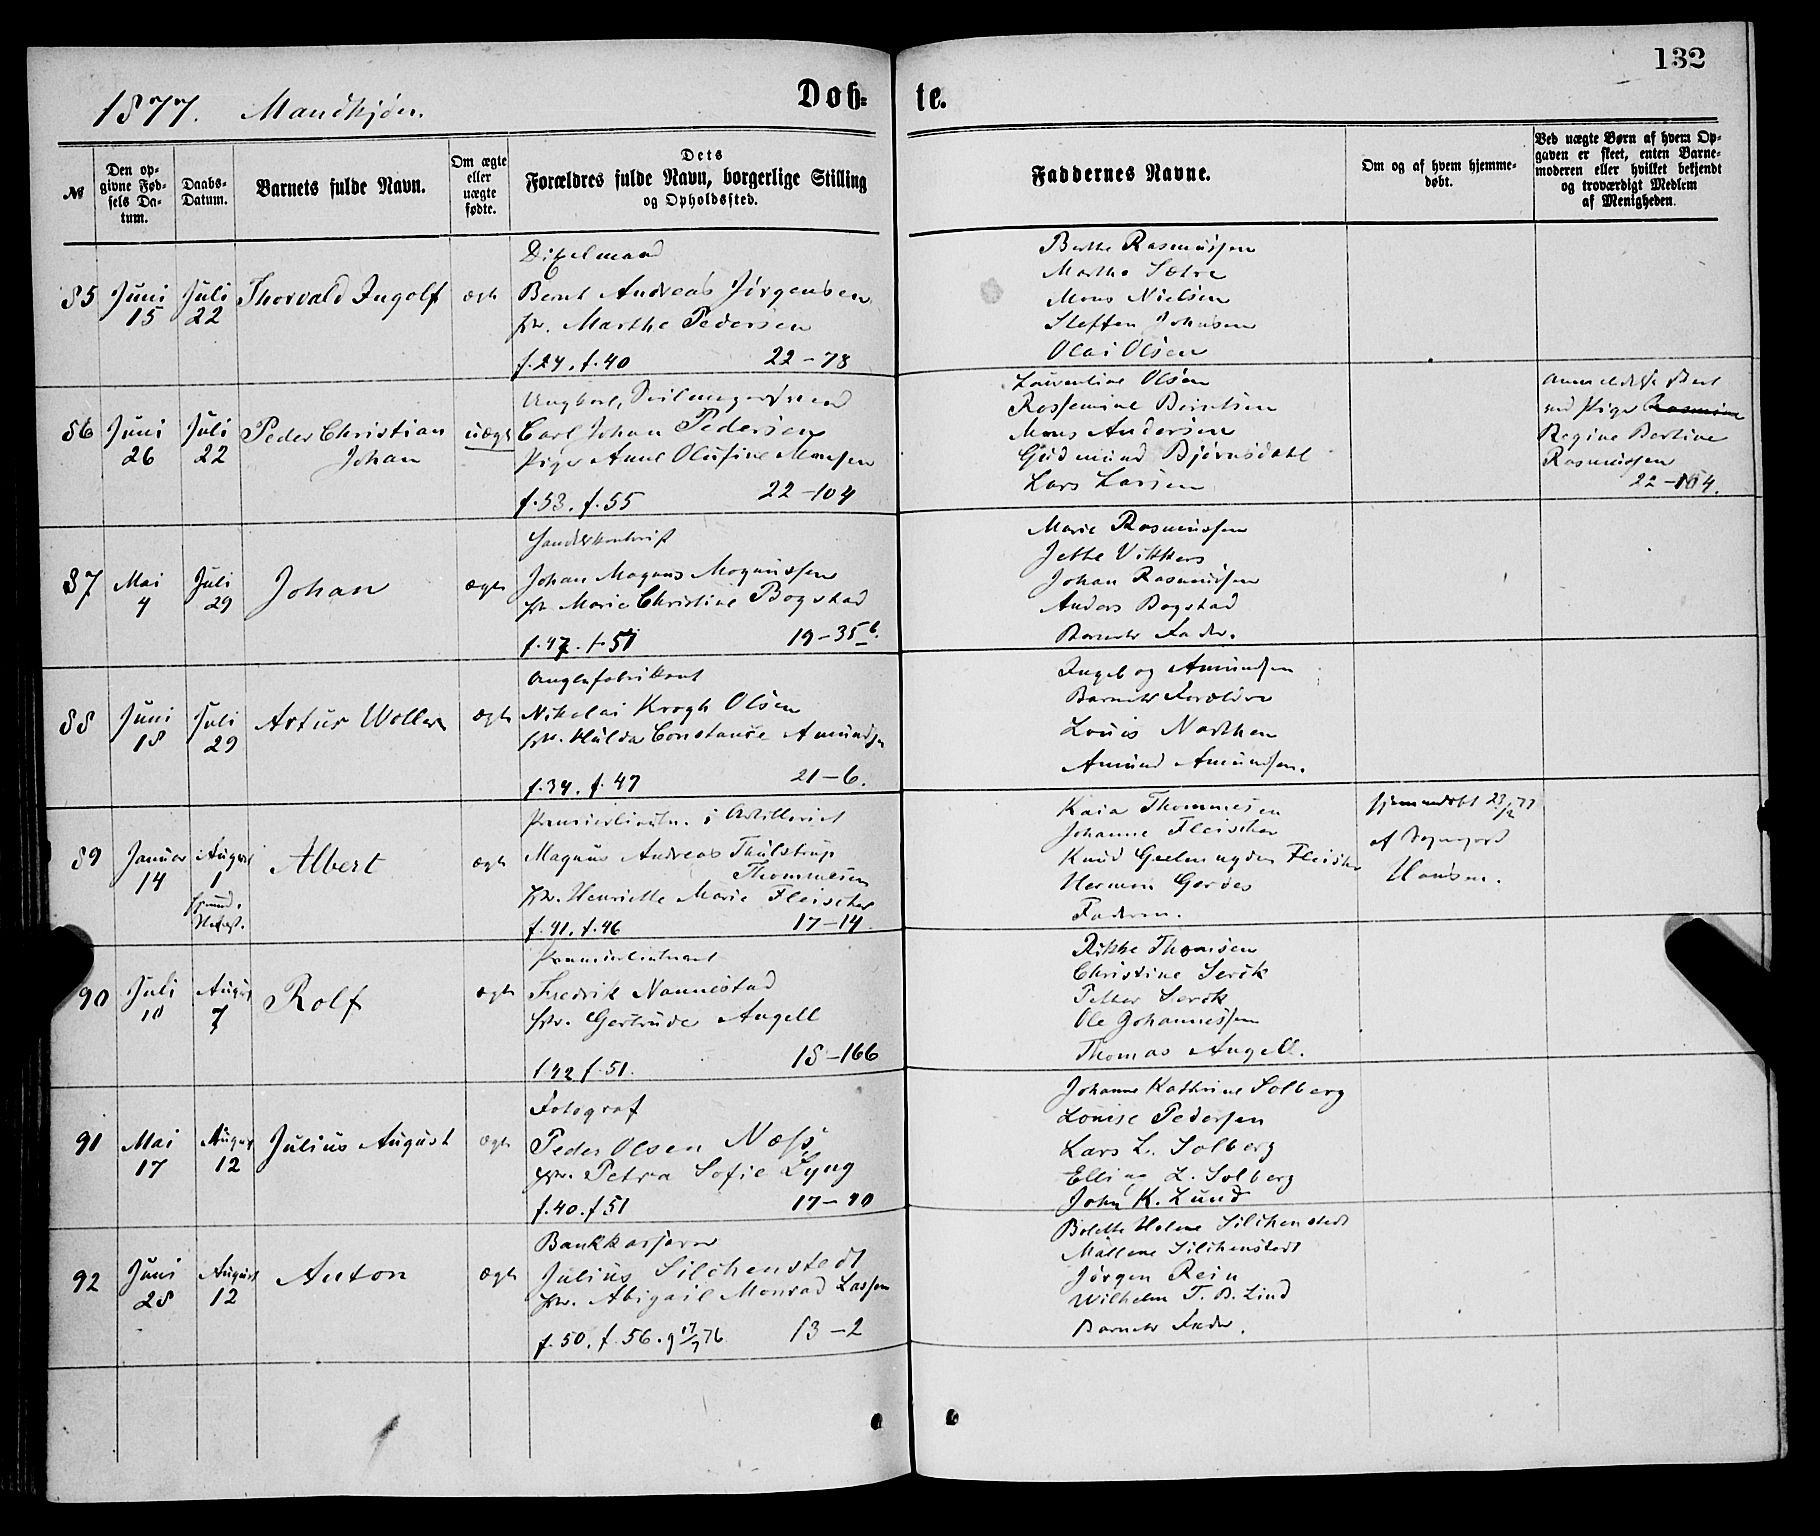 132
1877. Mandkjøn.
Døb- te.
№
Den op-
givne Fød-
sels Da-
tum.
Daabs-
Datum.
Barnets fulde Navn.
Om ægte
eller
uægte
fødte.
Dets
Forældres fulde Navn, borgerlige Stilling
og Opholdssted.
Faddernes Navne.
Om og af hvem hjemme-
døbt.
Ved uægte Børn af hvem Op-
gaven er skeet, enten Barne-
moderen eller hvilket bekjendt
og troværdigt Medlem
af Menigheden.
85
Juni
15
Juli
22
Thorvald Ingolf
ægte
Bernt Andreas Jørgensen
Marthe Pedersen
f. 24. f. 40 22-78
Berthe Rasmussen
Marthe Sætre
Mons Nielsen
Steffen Johnsen
Olai Olsen
86
Juni
26
Juli
22
Peder Christian
Johan
uægte
Ungkarl,
Carl Johan Pedersen
Pige Anne Olufine Monsen
f. 53. f. 55 22-104
Laurentine Olsen
Rossemine Berntsen
Mons Andersen
Gudmund Bjørnsdahl
Lars Larsen
ved Pige
Regine Bertine
Rasmussen
22-104.
87
Mai
4
Juli
29
Johan
ægte
Johan Magnus Magnussen
Marie Christine Bogstad
f. 47. f. 51 19-35 b.
Marie Rasmussen
Jette Vikkers
Johan Rasmussen
Anders Bogstad
Barnets Fader.
88
Juni
18
Juli
29
Artur Woller
ægte
Angelfabrikant
Nikolai Krogh Olsen
Hulda Constance Amundsen
f. 34. f. 47 21-6.
Ingeborg Amundsen
Barnets Forældre
Louis Narthen
Amund Amundsen.
89
Januar
14
August
1
Albert
ægte
Premierlieutn. i Artilleriet
Magnus Andreas Thulstrup
Thommesen
Henriette Marie Fleischer
f. 41. f. 46 17-14.
Kaia Thommesen
Johanne Fleischer
Knud Geelmuyden Fleischer
Herman Gerdes
Faderen.
hjemmedøbt 23/2 77
af Sognepræst
Hansen.
90
Juli
10
August
7
Rolf
ægte
Premierlieutnant
Fredrik Nannestad
Gertrude Angell
f. 42 f. 51. 18-166
Rikke Thomsen
Christine Serck
Petter Serck
Ole Johannessen
Thomas Angell.
91
Mai
17
August
12
Julius August
ægte
Fotograf
Peder Olsen Næss
Petra Sofie Lyng
f. 40. f 51 17-90
Johanne Kathrine Solberg
Louise Pedersen
Lars L. Solberg
Elling L. Solberg
John K. Lund
92
Juni
28
August
12
Anton
ægte
Bankkasserer
Julius Lilchenstedt
Abigail Monrad Lassen
f. 50. f. 56. g 17/9 76 13-2
Bolette Helene Lilchenstedt
Mallene Lilchenstedt
Jørgen Rein
Wilhelm T. B. Lind
Barnets Fader.